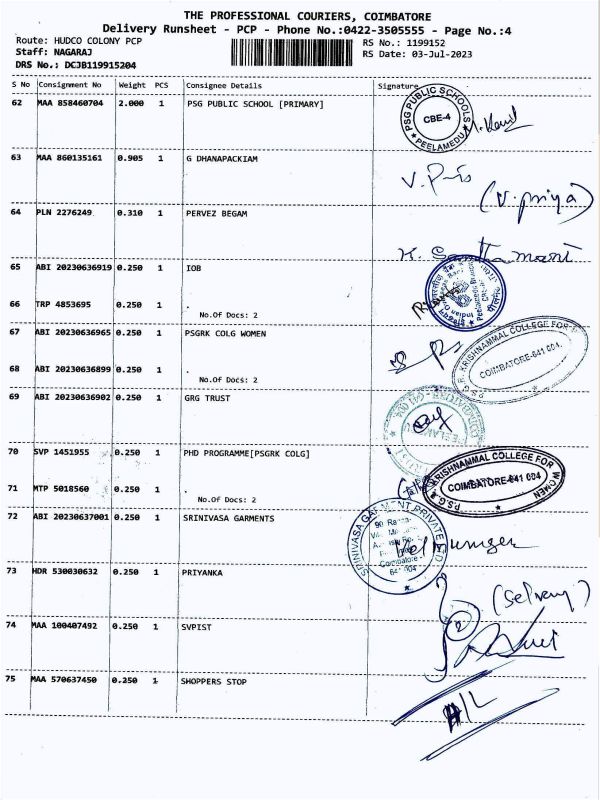 THE PROFESSIONAL COURIERS, COIMBATORE
Delivery Runsheet - PCP - Phone No.:0422-3505555 - Page No.:4
Route: HUDCO COLONY PCP
Staff: NAGARAJ
DRS No.: DCJB119915204
RS No.: 1199152
RS Date: 03-Jul-2023
S No Consignment No Weight PCS Consignee Details Signature
62 MAA 858460704 2.000 1 PSG PUBLIC SCHOOL [PRIMARY]
PSG PUBLIC SCHOOLS
CBE-4
★ PEELAMEDU ★
63 MAA 860135161 0.905 1 G DHANAPACKIAM
(V.priya)
64 PLN 2276249 0.310 1 PERVEZ BEGAM
65 ABI 20230636919 0.250 1 IOB
66 TRP 4853695 0.250 1 .
No.Of Docs: 2
67 ABI 20230636965 0.250 1 PSGRK COLG WOMEN
COIMBATORE-641 004.
68 ABI 20230636899 0.250 1 .
No.Of Docs: 2
69 ABI 20230636902 0.250 1 GRG TRUST
70 SVP 1451955 0.250 1 PHD PROGRAMME[PSGRK COLG]
P.S.G.R. KRISHNAMMAL COLLEGE FOR WOMEN
COIMBATORE-641 004
71 MTP 5018560 0.250 1 .
No.Of Docs: 2
72 ABI 20230637001 0.250 1 SRINIVASA GARMENTS
SRINIVASA GARMENT PRIVATE LTD
Coimbatore-
641 004
73 HDR 530030632 0.250 1 PRIYANKA
74 MAA 100407492 0.250 1 SVPIST
75 MAA 570637450 0.250 1 SHOPPERS STOP